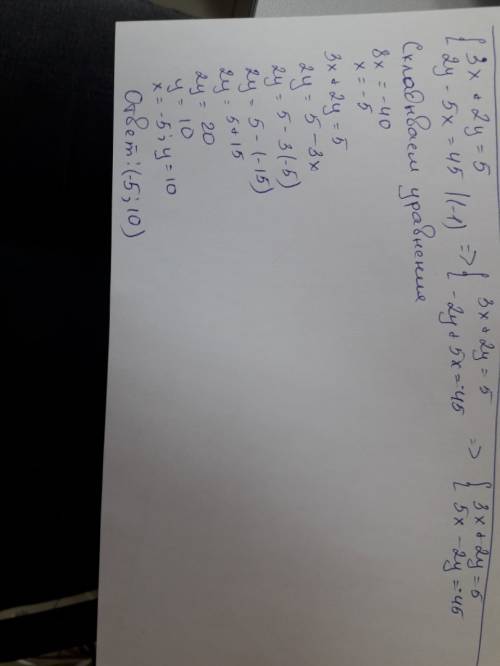 { 3x + 2y = 5 => { 3x + 2y = 5 => { 3x + 2y = 5
{ 2y - 5x = 45 |(-1) { -2y + 5x = -45 { 5x - 2y = -45
Складываем уравнения
8x = -40
x = -5
3x + 2y = 5
2y = 5 - 3x
2y = 5 - 3(-5)
2y = 5 - (-15)
2y = 5 + 15
2y = 20
y = 10
x = -5; y = 10
Ответ: (-5; 10)